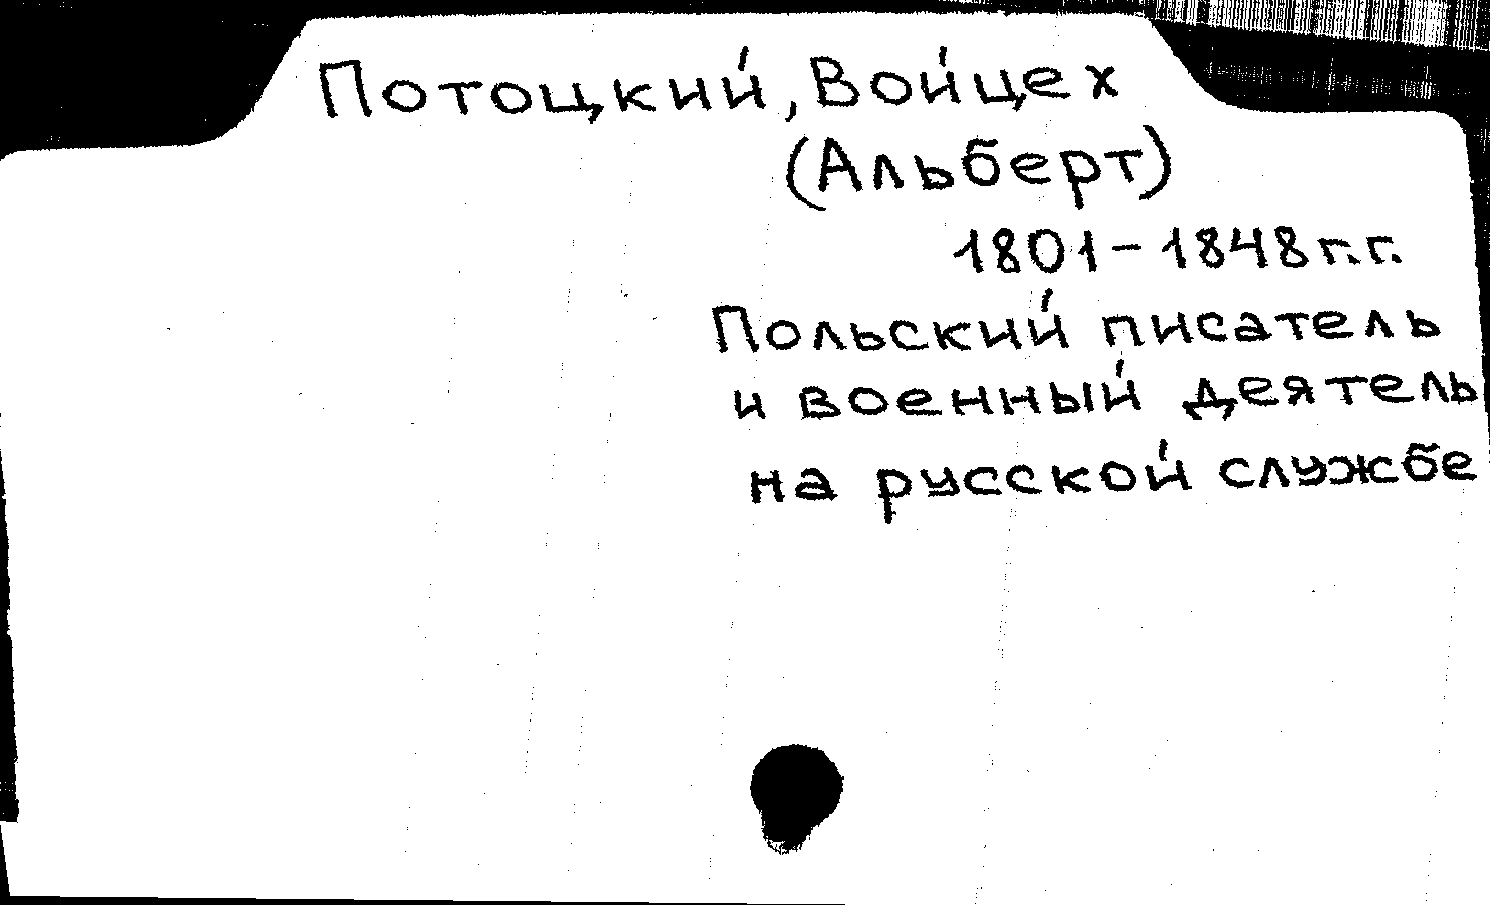 Потоцкий, Войцех
(Альберт)
1801-1848 г.г.
Польский писатель
и военный деятель
на русской службе